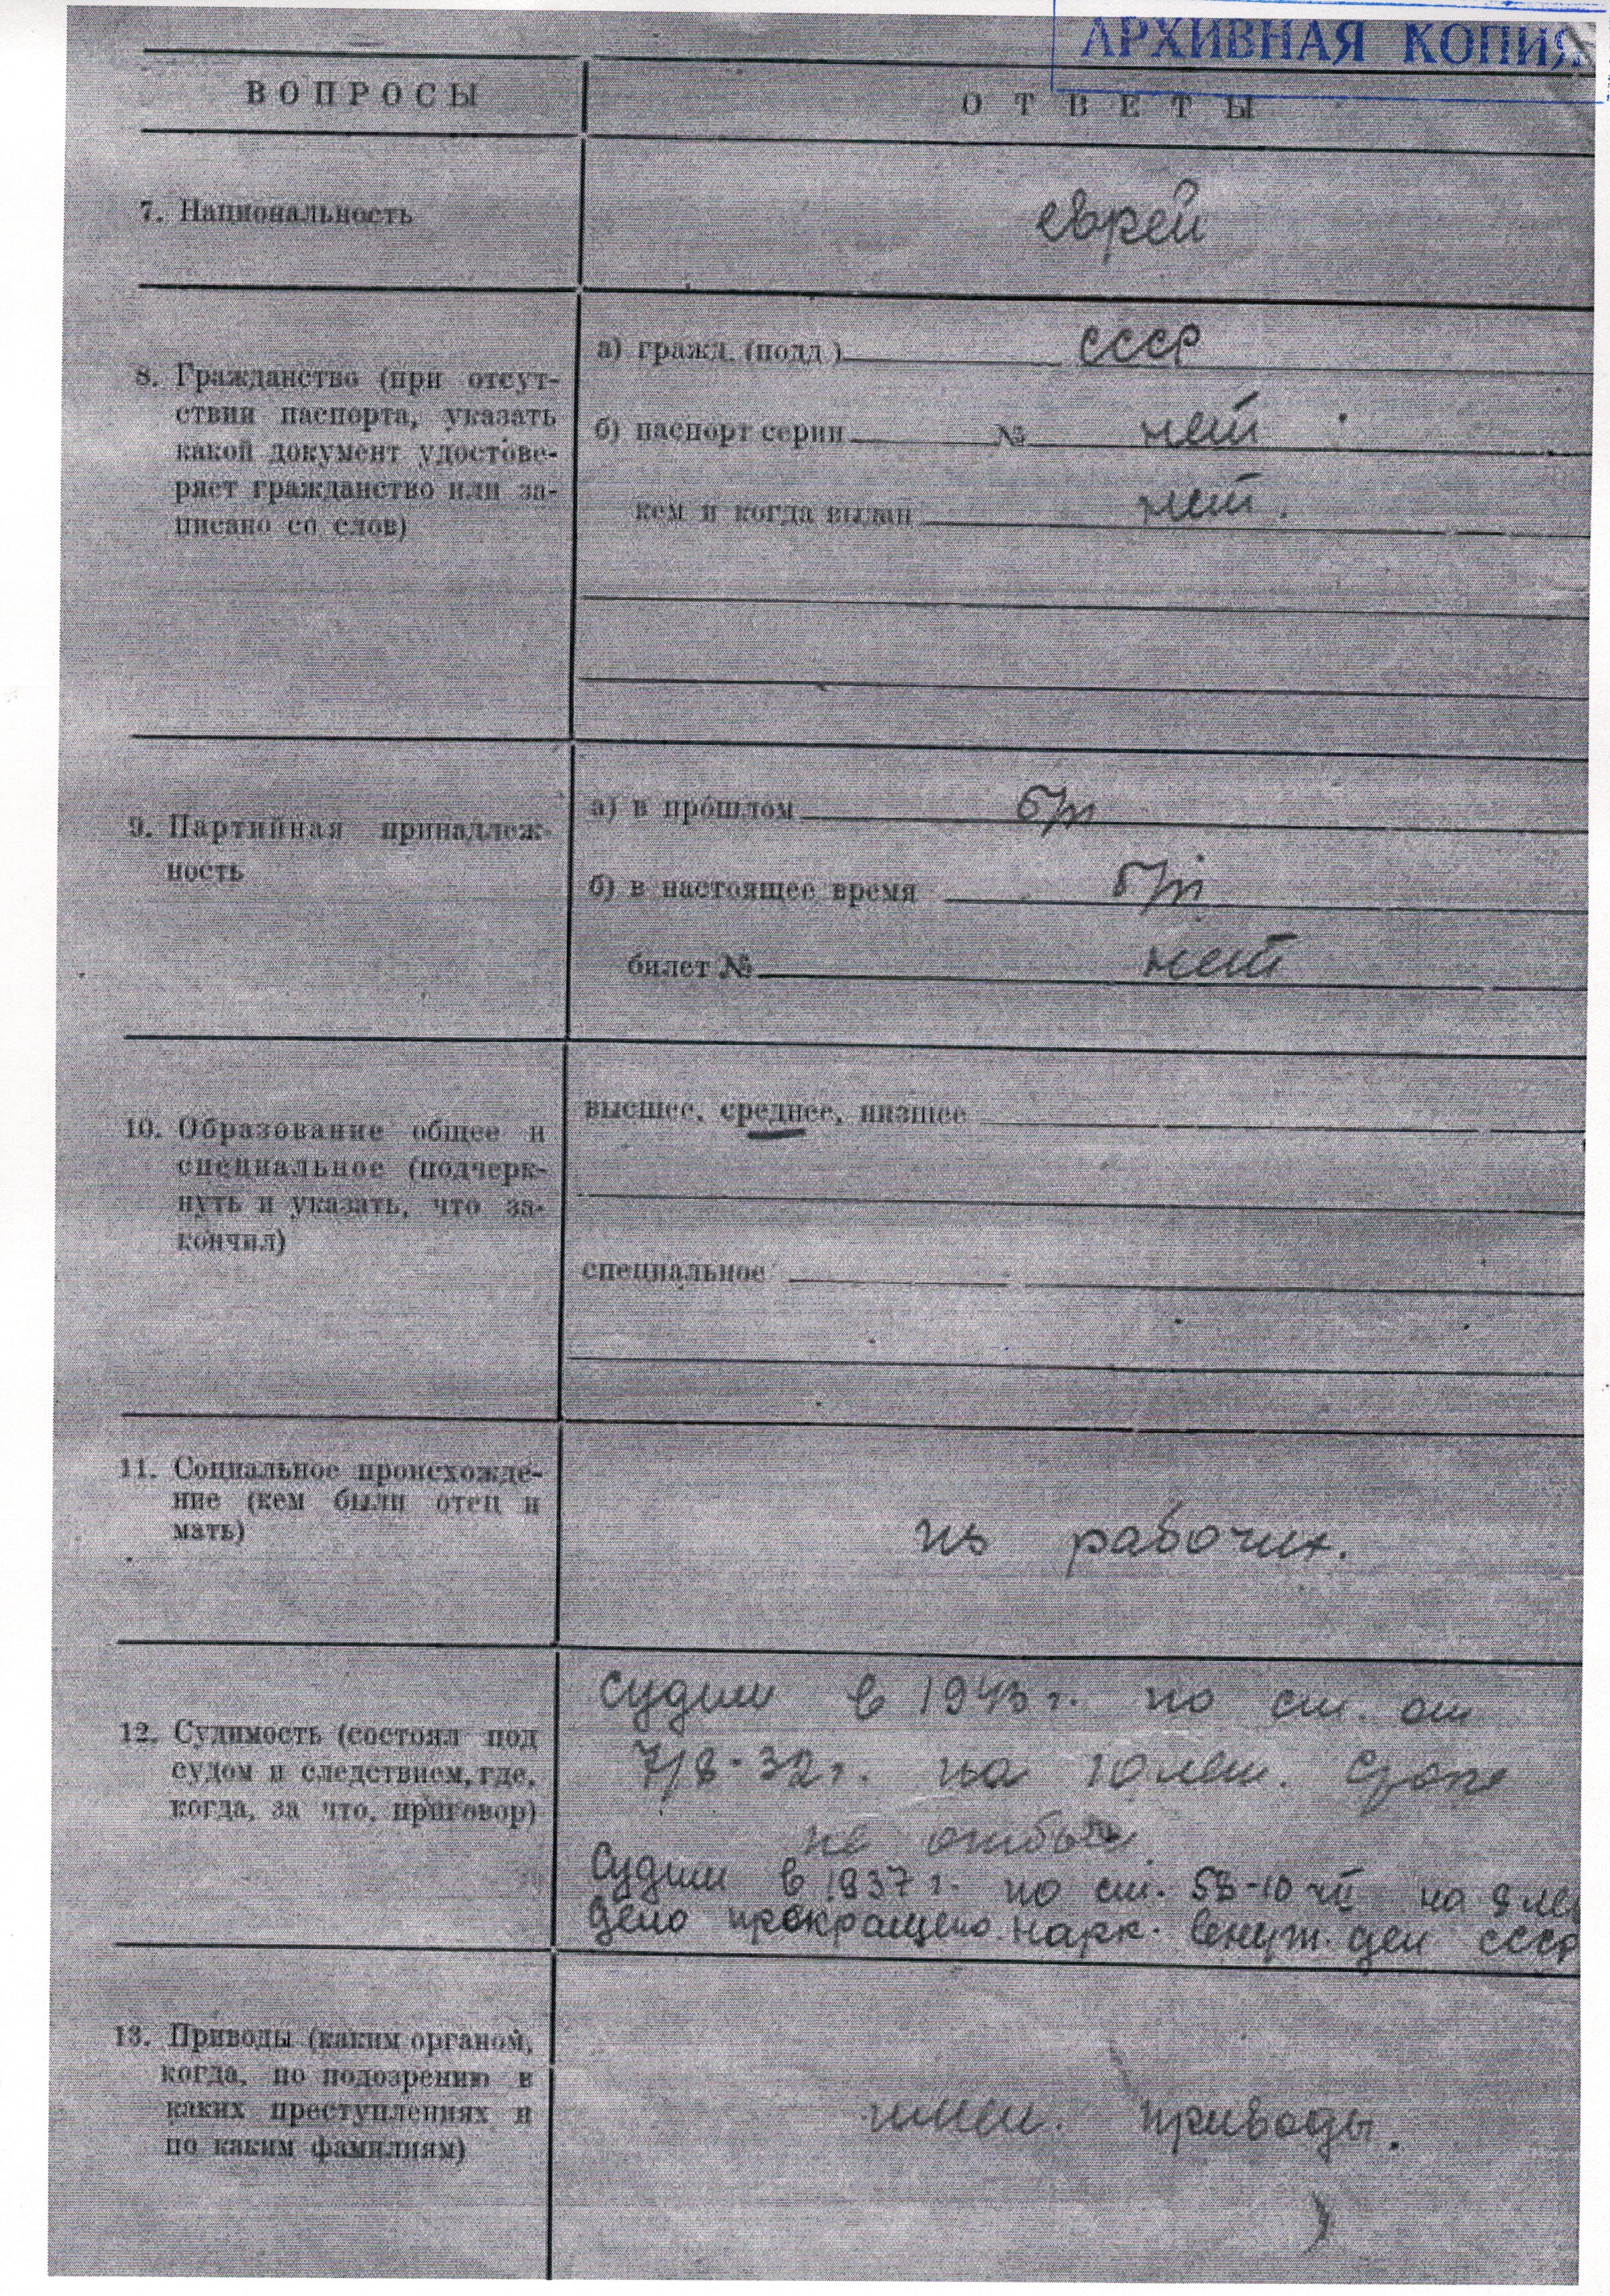 АРХИВНАЯ КОПИЯ
ВОПРОСЫ
ОТВЕТЫ
7. Национальность
еврей
8. Гражданство (при отсут-
ствии паспорта, указать
какой документ удостове-
ряет гражданство или за-
писано со слов)
а) гражд. (подд.) СССР
б) паспорт серии № нет
кем и когда выдан нет.
9. Партийная принадлеж-
ность
а) в прошлом б/п
б) в настоящее время б/п
билет № нет
10. Образование общее и
специальное (подчерк-
нуть и указать, что за-
кончил)
высшее, среднее, низшее
специальное
11. Социальное происхожде-
ние (кем были отец и
мать)
из рабочих.
12. Судимость (состоял под
судом и следствием, где,
когда, за что, приговор)
Судим в 1943 г. по ст. от
7/8-32 г. на 10 лет. Срок
не отбыл.
Судим в 1937 г. по ст. 58-10 ч II на 9 ле
Дело прекращено. нарк. внут. дел СССР
13. Приводы (каким органом,
когда, по подозрению в
каких преступлениях и
по каким фамилиям)
имел. приводы.